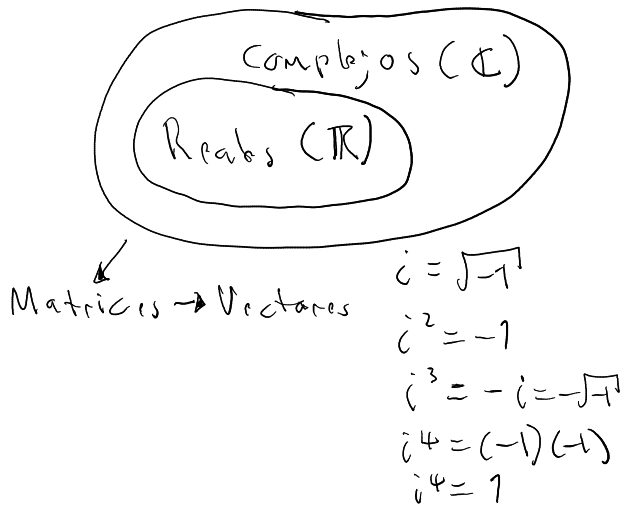 Complejos (ℂ)
Reales (ℝ)
Matrices → Vectores
i = √-1
i² = -1
i³ = -i = -√-1
i⁴ = (-1)(-1)
i⁴ = 1